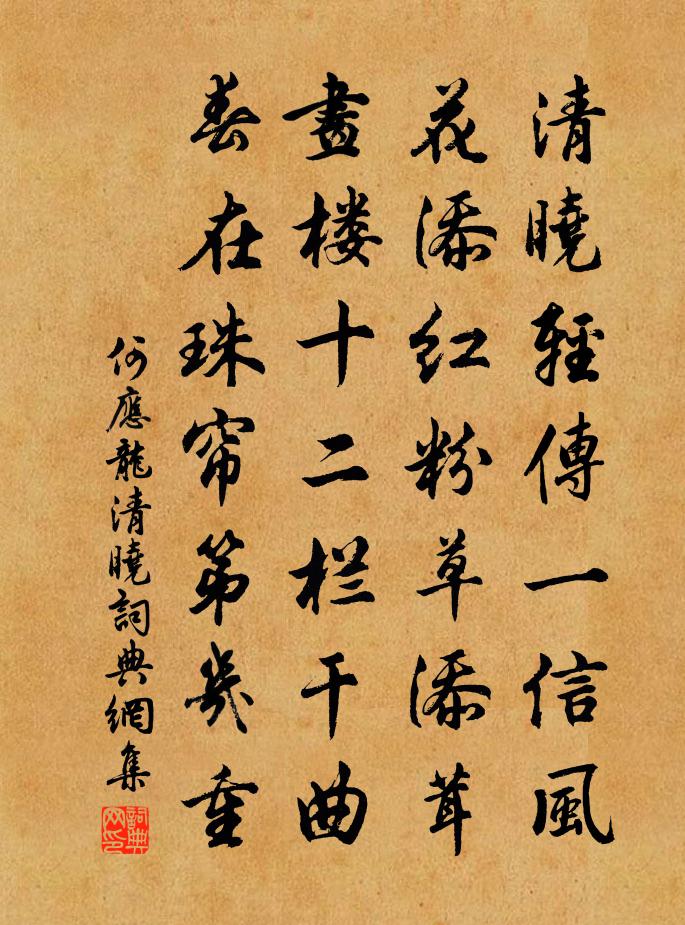 清曉輕傳一信風
花添红粉草添茸
畫楼十二栏干曲
春在珠帘第幾重
何應龍清曉詞典網集
詞典网印